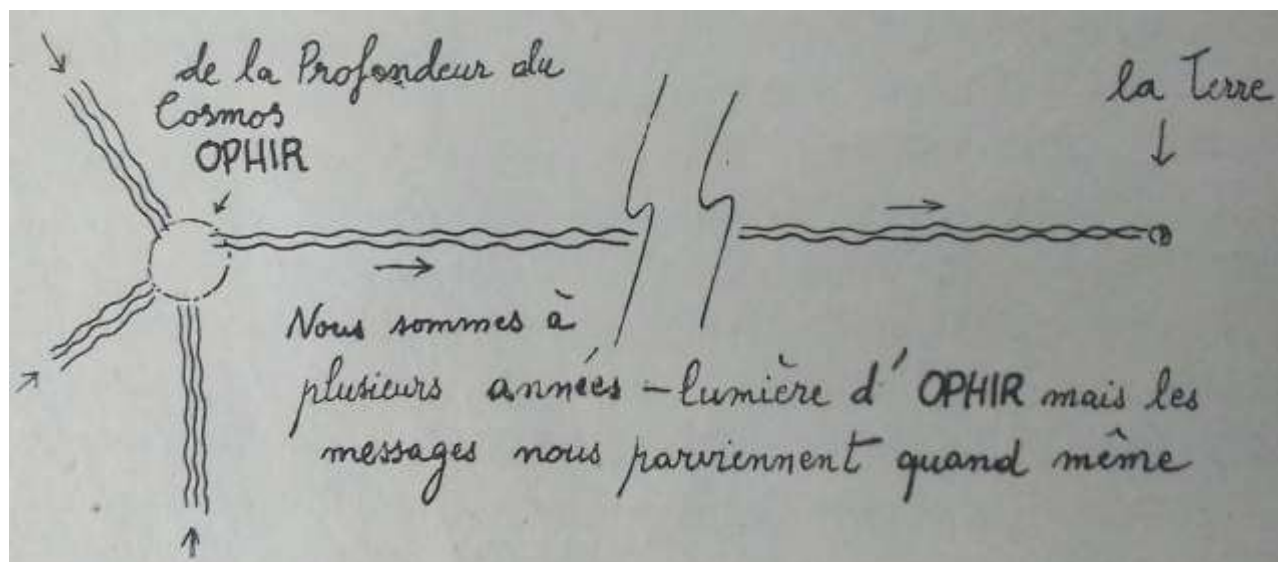 de la Profondeur du
Cosmos
OPHIR
la Terre
Nous sommes à
plusieurs années-lumière d'OPHIR mais les
messages nous parviennent quand même